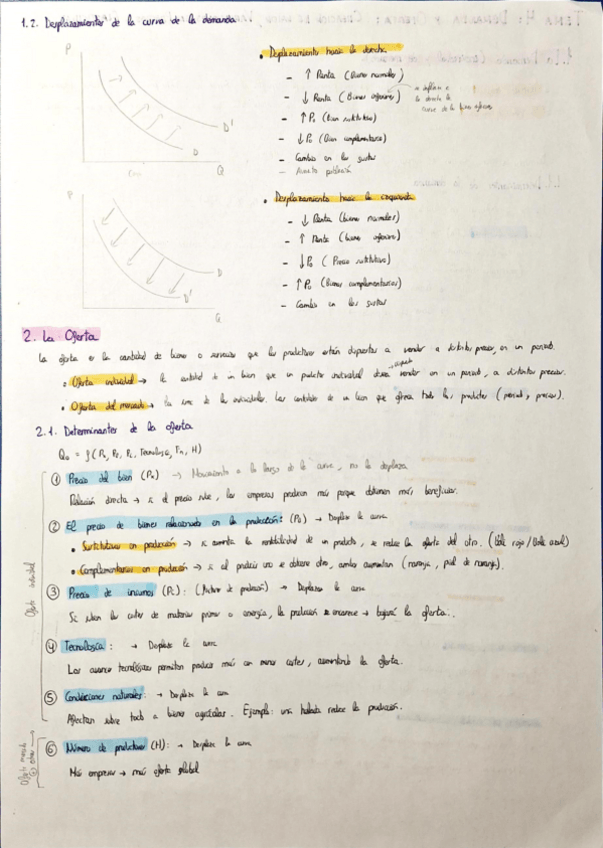 1.2. Desplazamientos de la curva de la demanda
P
D'
D
Q
• Desplazamiento hacia la derecha
- ↑ Renta (Bienes normales)
- ↓ Renta (Bienes inferiores)
- ↑ P₀ (Bien sustitutivo)
- ↓ P₀ (Bien complementario)
- Cambio en los gustos
- Aumento población
P
D
D'
Q
• Desplazamiento hacia la izquierda
- ↓ Renta (bienes normales)
- ↑ Renta (bienes inferiores)
- ↓ P₀ (Precio sustitutivo)
- ↑ P₀ (Bienes complementarios)
- Cambio en los gustos
2. La Oferta
La oferta es la cantidad de bienes o servicios que los productores están dispuestos a vender a distintos precios, en un periodo.
• Oferta individual → la cantidad de un bien que un productor individual desea vender en un periodo, a distintos precios.
• Oferta del mercado → la suma de las individuales. Las cantidades de un bien que ofrecen todos los productores (periodo, precios).
2.1. Determinantes de la oferta
① Precio del bien (Pₓ) → Movimiento a lo largo de la curva, no la desplaza
Relación directa → si el precio sube, las empresas producen más porque obtienen más beneficios.
② El precio de bienes relacionados en la producción: (P₀) → Desplaza la curva
• Sustitutivos en producción → si aumenta la rentabilidad de un producto, se reduce la oferta del otro. (
• Complementarios en producción → si al producir uno se obtiene otro, ambos aumentan (naranja, piel de naranja).
③ Precio de insumos (Pc): (Factores de producción) → Desplaza la curva
Si suben los costes de materias primas o energía, la producción se encarece → bajará la oferta.
④ Tecnología: → Desplaza la curva
Los avances tecnológicos permiten producir más con menos costes, aumentando la oferta.
⑤ Condiciones naturales: → Desplaza la curva
Afectan sobre todo a bienes agrícolas. Ejemplo: una helada reduce la producción.
⑥ Número de productores (H): → Desplaza la curva
Más empresas → más oferta global
Oferta individual